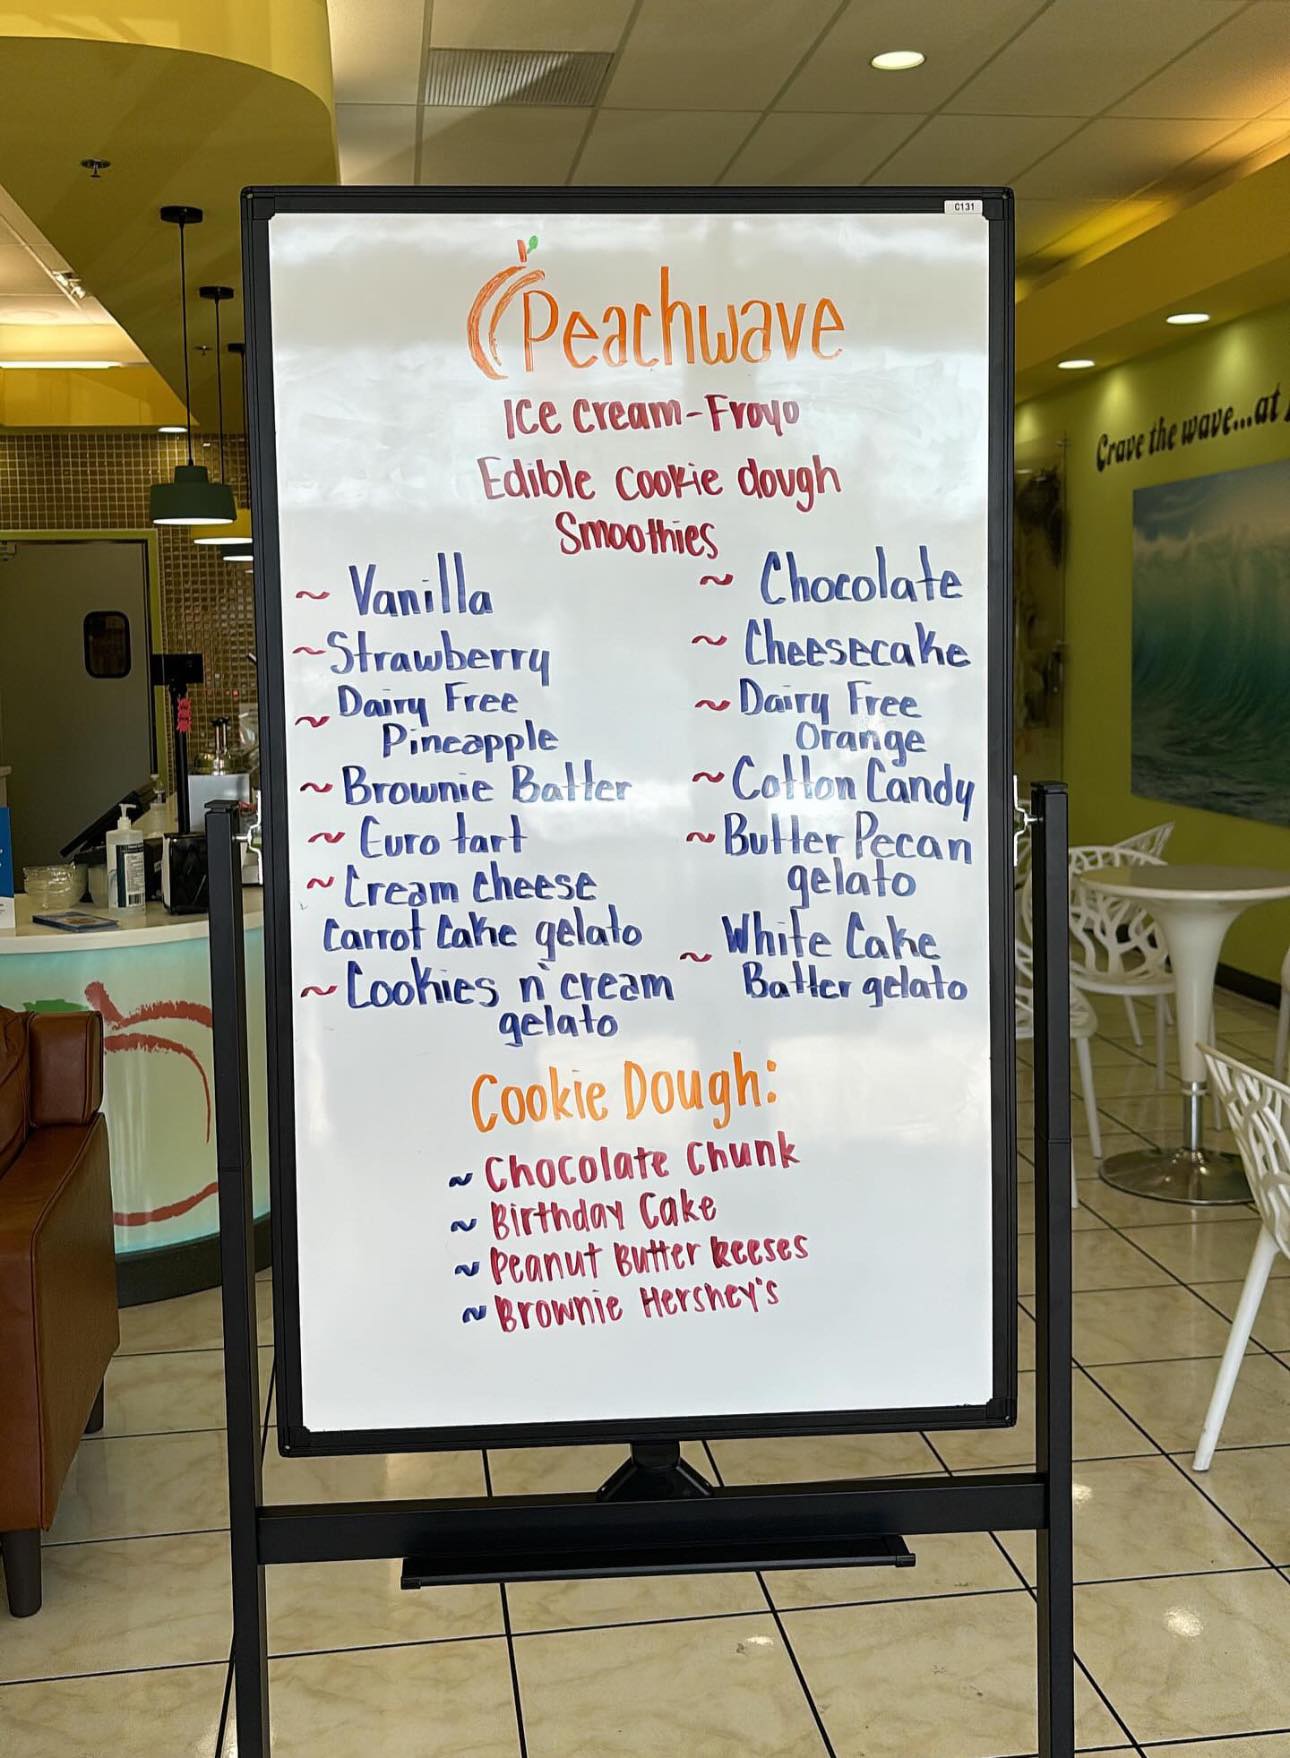 C131
Peachwave
Ice Cream-Froyo
Edible cookie dough
Smoothies
~ Vanilla
~ Strawberry
~ Dairy Free
Pineapple
~ Brownie Batter
~ Euro tart
~ Cream cheese
Carrot Cake gelato
~ Cookies n' cream
gelato
~ Chocolate
~ Cheesecake
~ Dairy Free
Orange
~ Cotton Candy
~ Butter Pecan
gelato
~ White Cake
Batter gelato
Cookie Dough:
~ Chocolate Chunk
~ Birthday Cake
~ Peanut Butter Reeses
~ Brownie Hershey's
Crave the wave...at